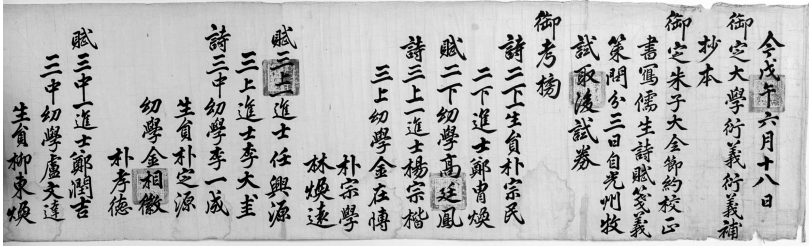 今戊午六月十八日
御定大學衍義衍義補
抄本
御定朱子大全節約校正
書寫儒生詩賦箋義
策問分三日自光州牧
試取後試券
御考榜
詩二下一生員朴宗民
二下進士鄭胄煥
賦二下幼學高廷鳳
詩三上一進士楊宗楷
三上幼學金在愽
朴宗學
林煥遠
賦三上進士任興源
三上進士李大圭
詩三中幼學李一成
生員朴定源
幼學金相徽
朴孝德
賦三中一進士鄭閏吉
三中幼學盧文達
生員柳東煥